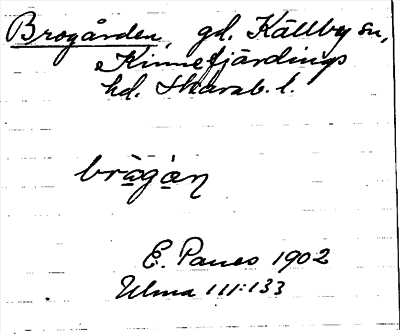 Brogården, gd. Källby sn,
Kinnefjärdings
hd. Skarab. l.
E. Paues 1902
Ulma 111:133